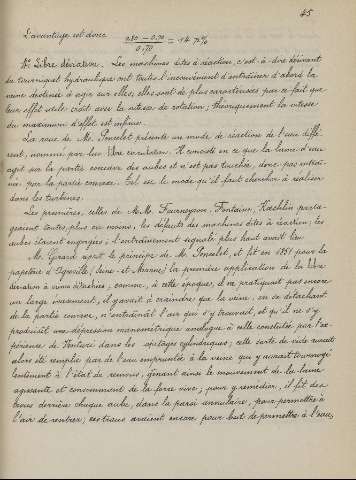 45
L'avantage est donc 0.80 - 0.70 / 0.70 = 14 %
1º Libre déviation. Les machines dites à réaction, c'est-à-dire dérivant
du tourniquet hydraulique ont toutes l'inconvénient d'entraîner d'abord la
veine destinée à agir sur elles; elles ont de plus caractérisées par ce fait que
leur effet utile croît avec la vitesse de rotation; théoriquement la vitesse
du maximum d'effet est infinie.
La roue de M. Poncelet présente un mode de réaction de l'eau diffé-
rent, nommé par lui libre circulation. Il consiste en ce que la lame d'eau
agit sur la partie concave des aubes et n'est pas touchée, donc pas entraî-
née par la partie convexe. Tel est le mode qu'il faut chercher à réaliser
dans les turbines.
Les premières, celles de MM. Fourneyron, Fontaine, Koechlin parta-
geaient toutes, plus ou moins, les défauts des machines dites à réaction; les
aubes étaient engorgées; l'entraînement signalé plus haut avait lieu.
M. Girard reprit le principe de M. Poncelet, et fit en 1851 pour la
papeterie d'Egreville (Seine-et-Marne) la première application de la libre
déviation à veines détachées; comme, à cette époque, il ne pratiquait pas encore
un large évasement, il y avait à craindre que la veine, en se détachant
de la partie convexe, n'entraînât l'air qui s'y trouvait, et qu'il ne s'y
produisît une dépression manométrique analogue à celle constatée par l'ex-
périence de Venturi dans les ajutages cylindriques; cette sorte de vide aurait
alors été remplie par de l'eau empruntée à la veine qui y aurait tournoyé
lentement à l'état de remous, gênant ainsi le mouvement de la lame
agissante et consommant de la force vive; pour y remédier, il fit des
trous derrière chaque aube, dans la paroi annulaire, pour permettre à
l'air de rentrer; ces trous avaient encore pour but de permettre à l'eau,